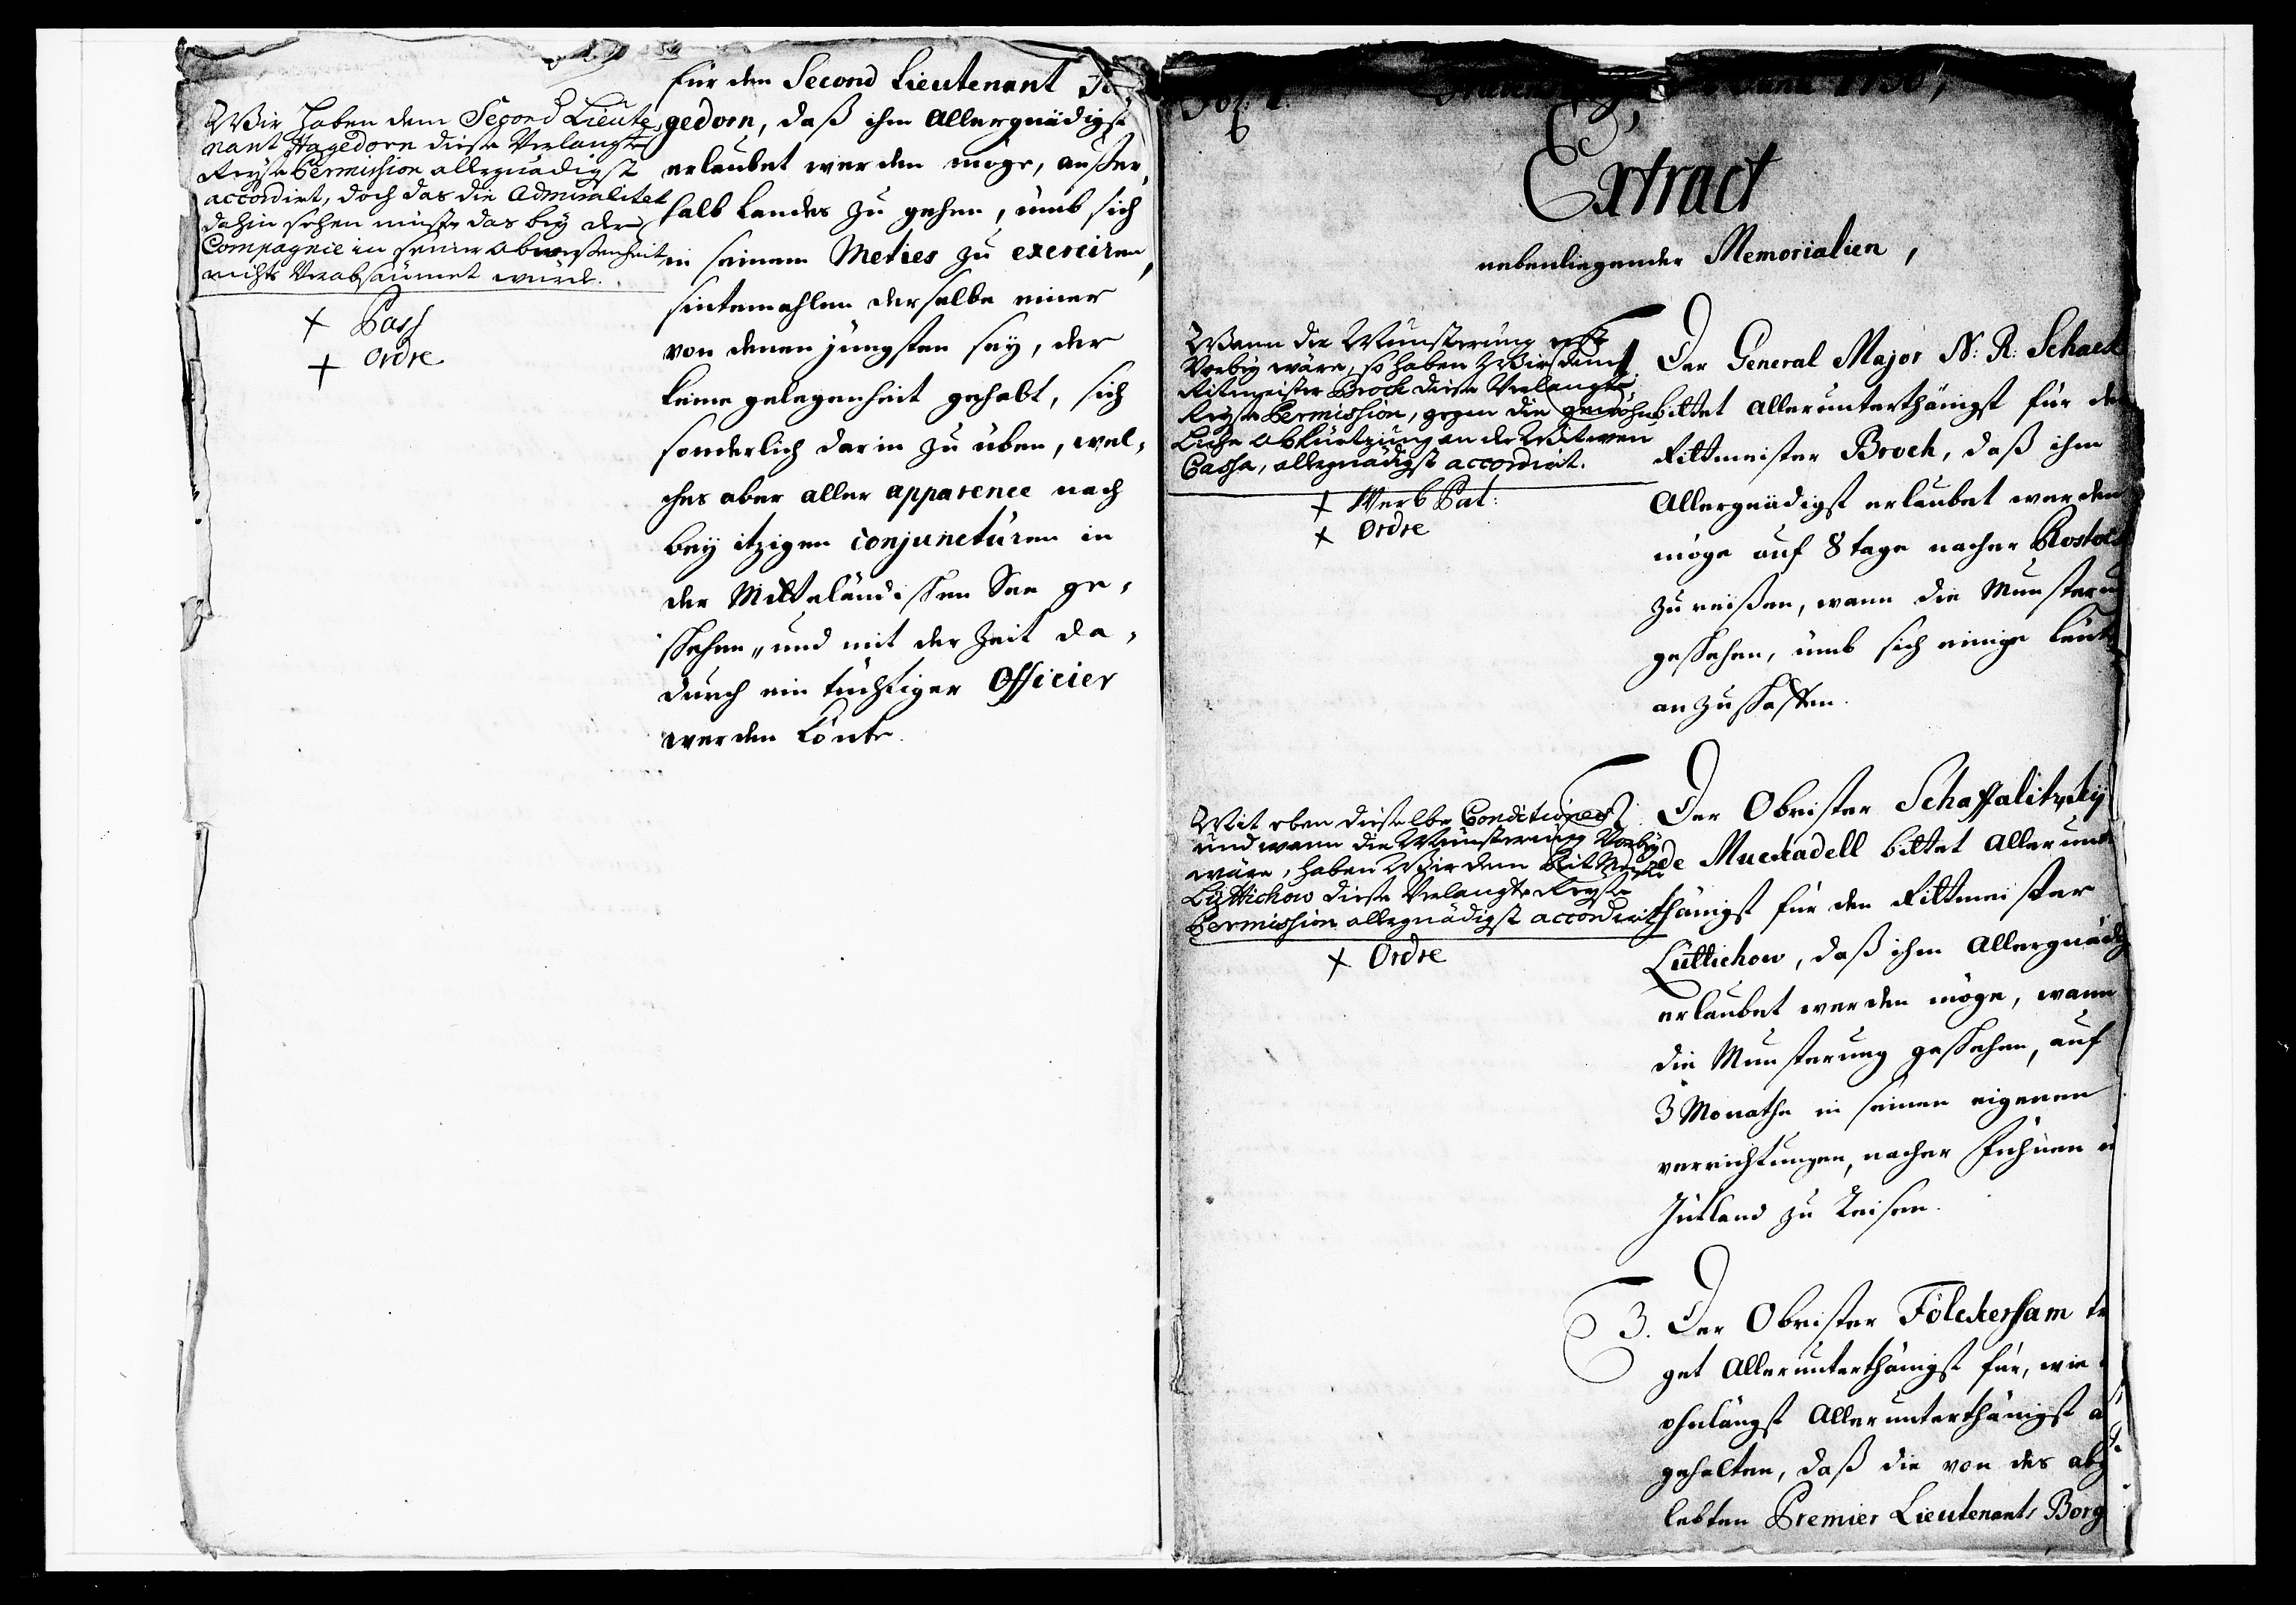 Wir haben dem Second Lieute,
nant Hagedorn diese Verlangte
Reyse Permission allergnädigst
accordiret, doch das die Admiralitet
dahin sehen müste das bey der
Compagnie in seiner abwesenheit
nichts Verabsäumet würde.
+ Pass
+ Ordre
für den Second Lieutenant
gedorn, daß ihm Allergnädigst
erlaubet werden möge, außer,
halb Landes zu gehen, umb sich
in seinem Metier zu exerciren,
sintemahlen derselbe einer
von denen jüngsten sey, der
keine gelegenheit gehabt, sich
sonderlich darin zu üben, wel,
ches aber aller apparence nach
bey itzigen conjuncturen in
der Mittelländischen See ge,
schehen, und mit der Zeit da,
durch ein tüchtiger Officier
werden könte.
Fol: 1.
Extract
nebenliegender Memorialien,
Wann die Munsterung erst
Vorbey wäre, so haben Wir dem
Ritmeister Brock diese Verlangte
Reyse Permission, gegen die gewöhn
liche abkürtzung an die Witwen
Cassa, allergnädigst accordirt.
+ Werb Pat:
+ Ordre
1. Der General Major N: R: Schack
bittet allerunterthänigst für den
Rittmeister Brock, daß ihm
Allergnädigst erlaubet werden
möge auf 8 tage nacher Rostock
zu reißen, wann die Munsterung
geschehen, umb sich einige Leut
anzuschaffen.
Mit eben dieselbe Conditiones
und wann die Munsterung Vorbey
wäre, haben Wir dem Rit Meister
Lüttichow diese Verlangte Reyse
Permission allergnädigst accordirt
+ Ordre
2. Der Obrister Schaffalitzky
de Muckadell bittet allerun
thänigst für den Rittmeister
Lüttichow, daß ihm Allergnädig
erlaubet werden möge, wann
die Munsterung geschehen, auf
3 Monathe in seinen eigenen
verrichtungen, nacher Fühnen
Jütland zu Reisen.
3. Der Obrister Fölckersam tr
get Allerunterthänigst für, wie
ohnlängst Allerunterthänigst a
gehalten, daß die von des abg
lebten Premier Lieutenants Borg